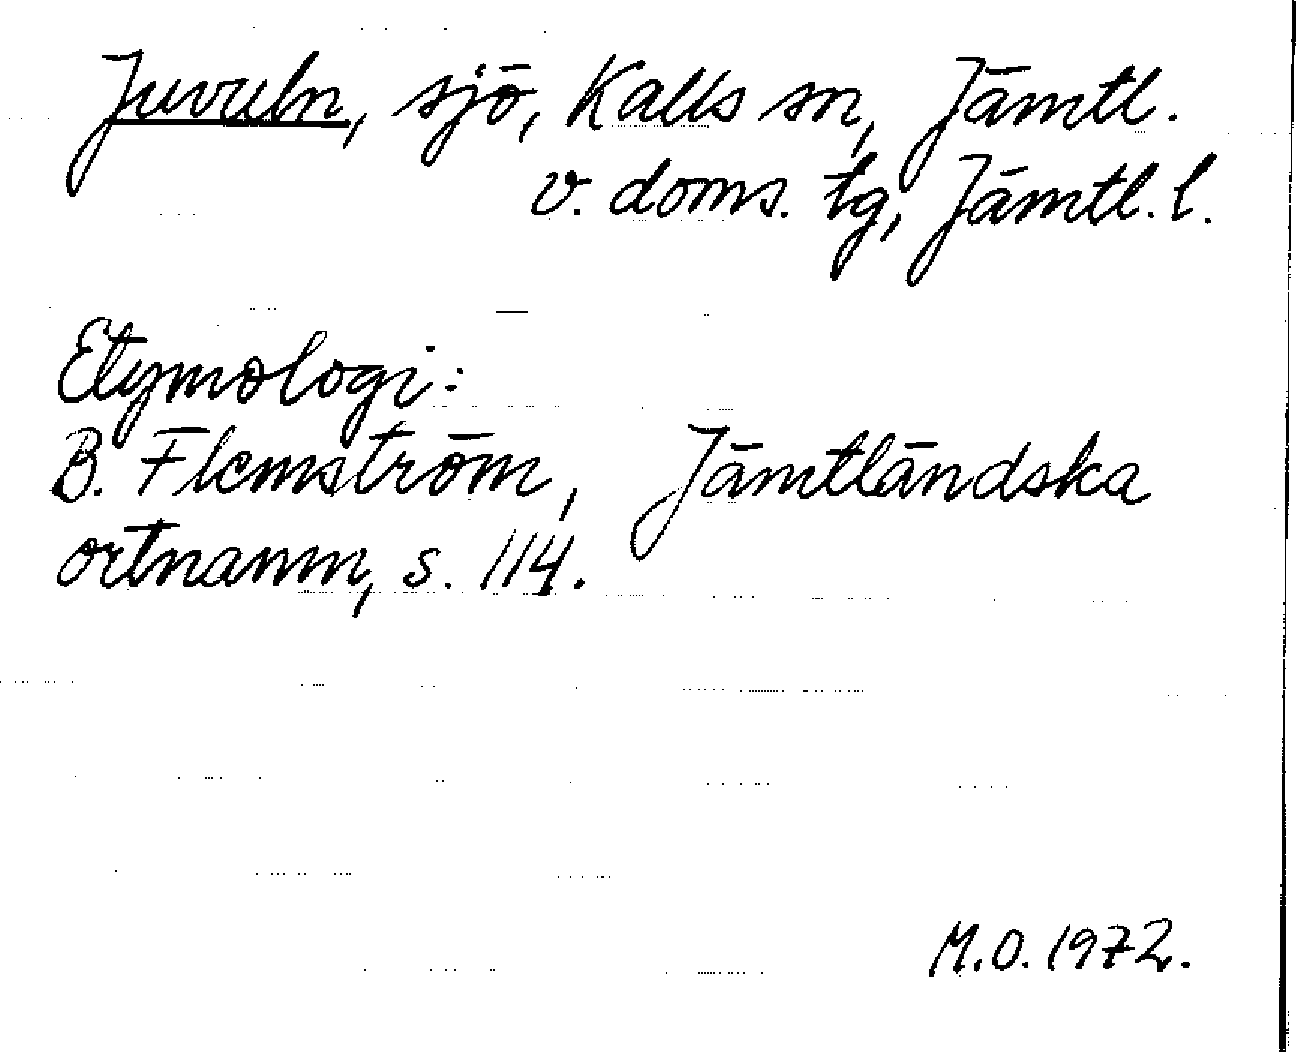 Juvuln, sjö, Kalls sn, Jämtl.
v. doms. tg, Jämtl. l.
Etymologi:
B. Flemström, Jämtländska
ortnamn, s. 114.
M.O. 1972.